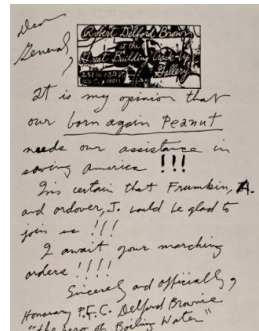 Dear
General,
Robert Delford Brown
at the
Great Building Crack-Up
Gallery
251 W. 13 St.
It is my opinion that
our born again Peanut
needs our assistance in
saving America !!!
I'm certain that Frumkin, A.
and ordover, J. would be glad to
join us !!!
I await your marching
orders !!!!
Sincerely and officially,
Honorary P.F.C. Delford Brownie
"the hero of Boiling Water"